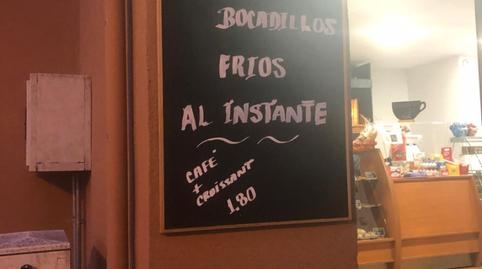 BOCADILLOS
FRIOS
AL INSTANTE
CAFÉ
+
CROISSANT
1.80